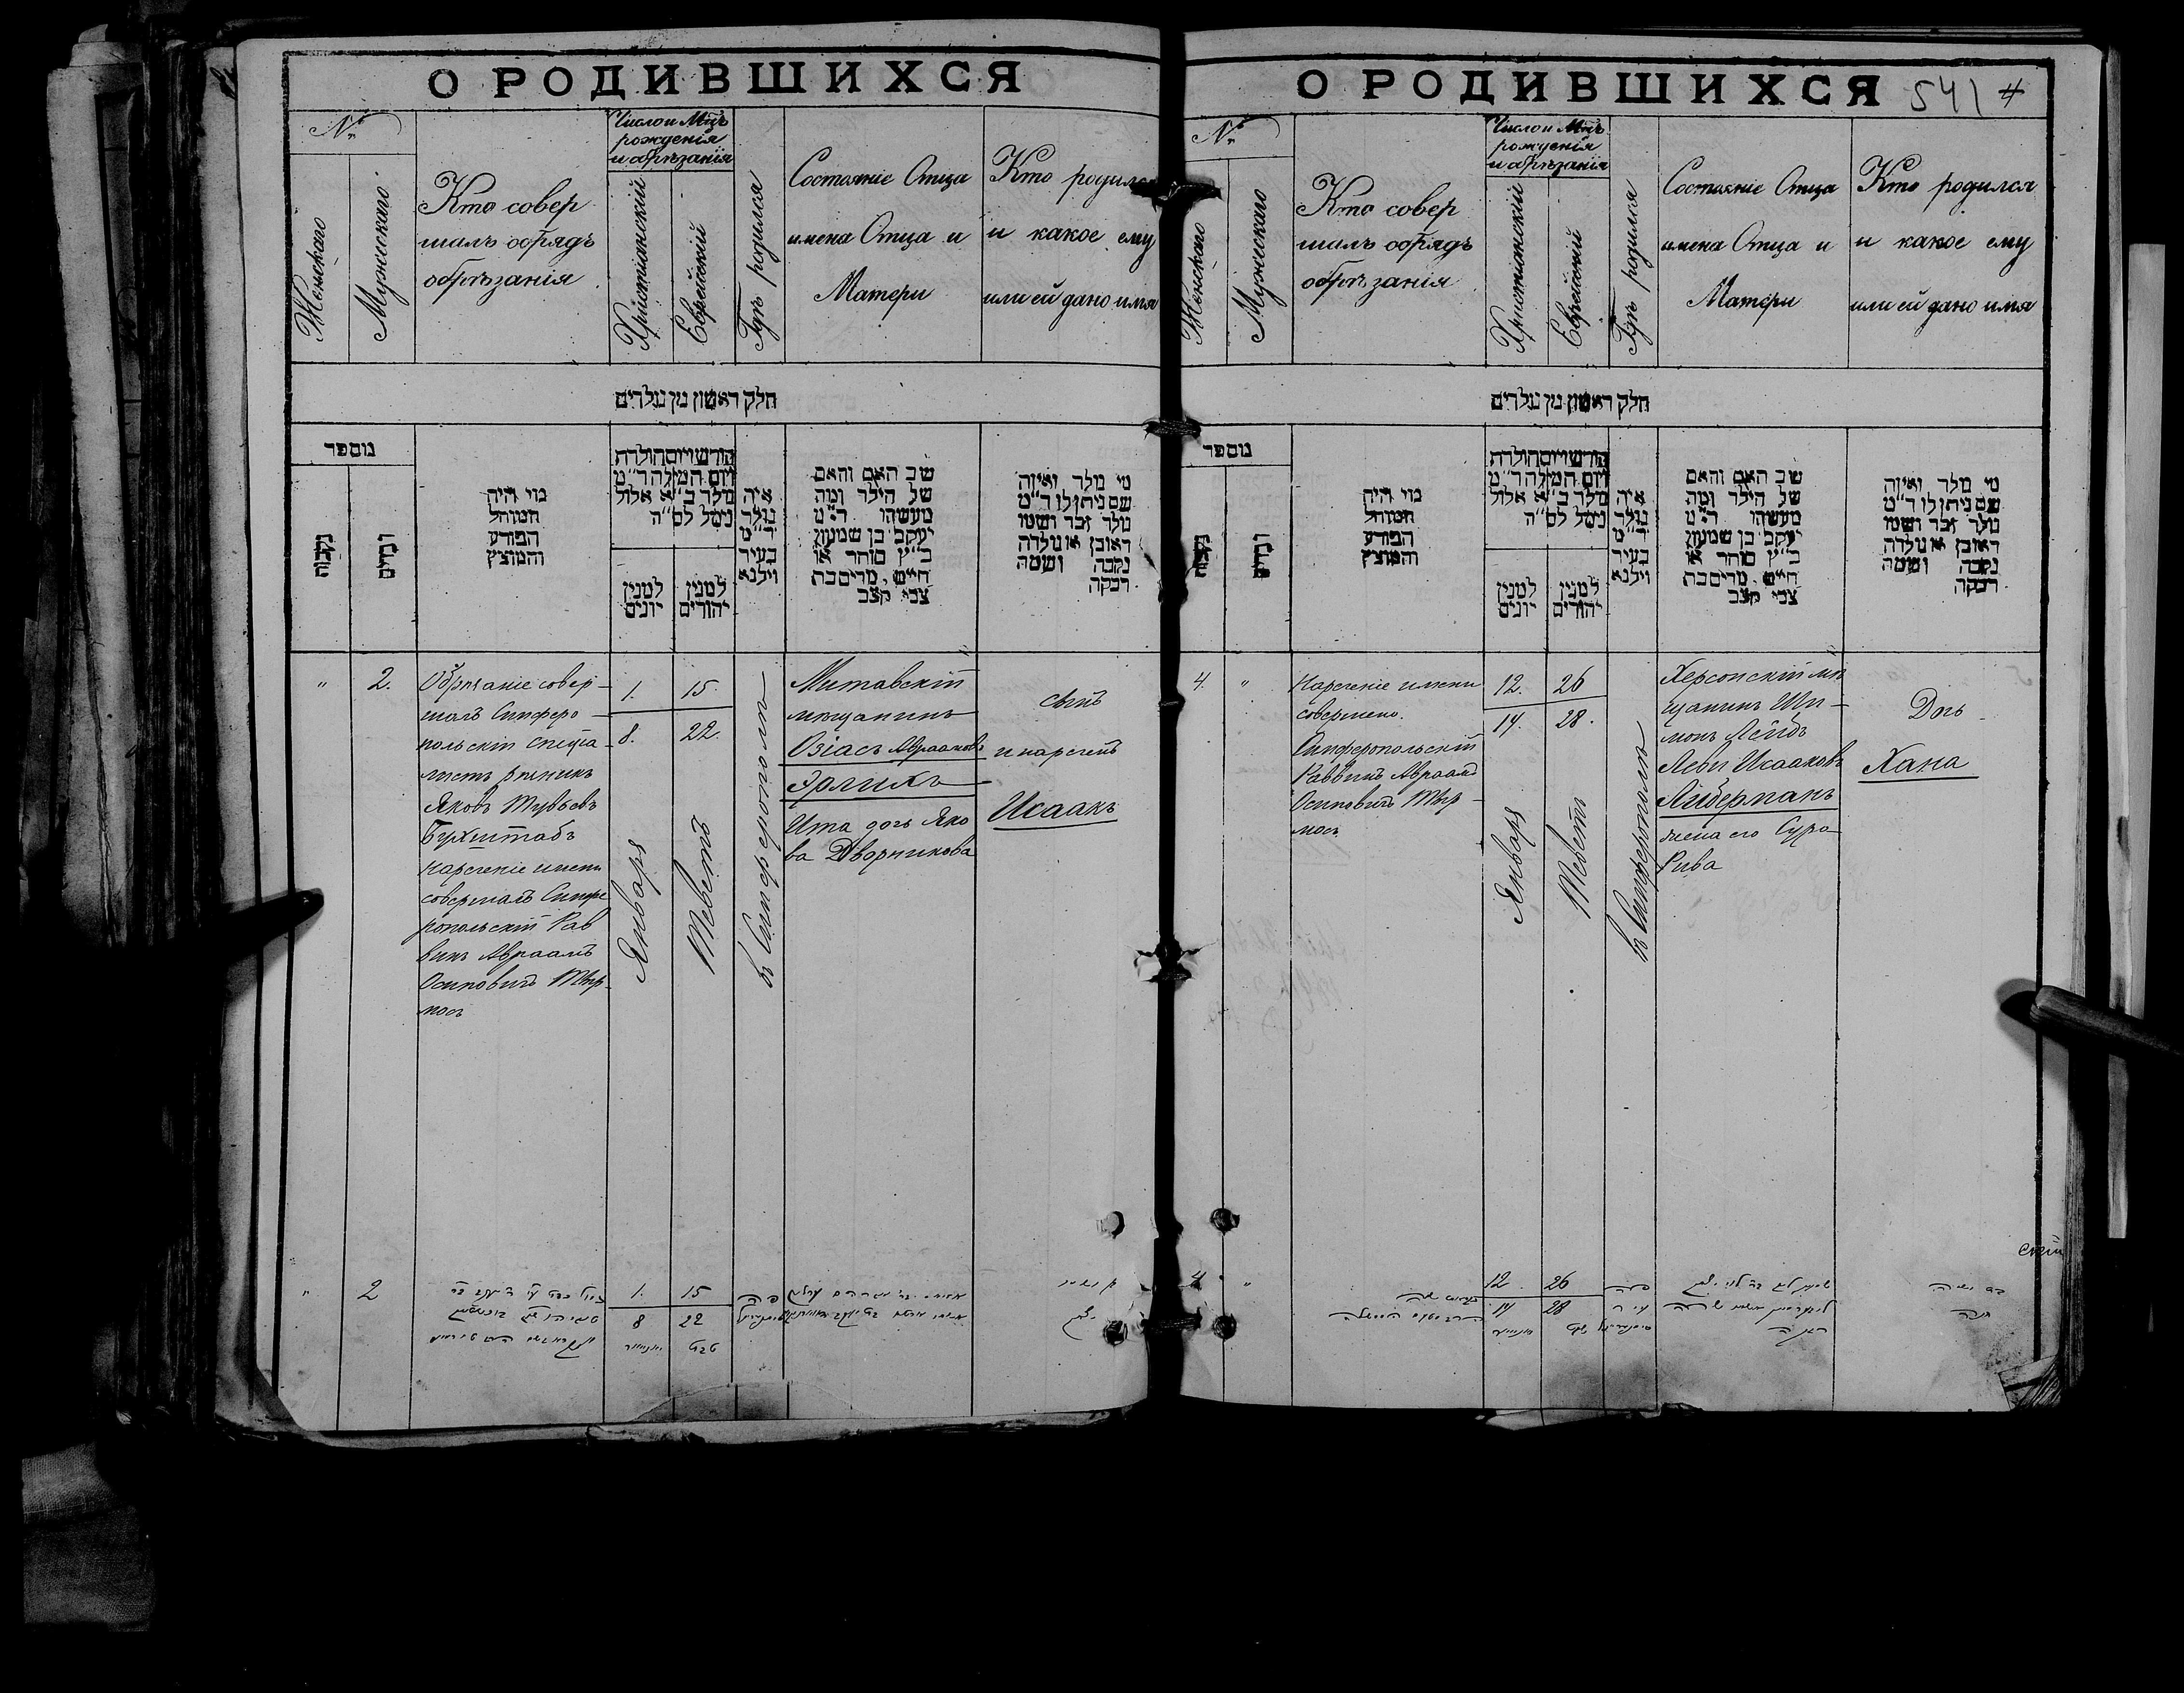 О РОДИВШИХСЯ
№
Женскаго
Мужескаго
Кто совер
шалъ обрядъ
обрѣзанія
Число и Мцъ
рожденія
и обрѣзанія
Христіанскій
Еврейскій
Гдѣ родился
Состояніе Отца
имена Отца и
Матери
Кто родился
и какое ему
или ей дано имя
חלק ראשון מן נולדים
מספר
נקבות
זכרים
מי היה
המוהל
הפורע
והמוצץ
חודש ויום הולדת
ויום המילה ד״מ
נולד ב״א אלול
נימל לס״ה
למנין
יונים
למנין
יהודים
איה
נולד
ד״מ
בעיר
וילנא
שב האם והאם
של הילד ומה
מעשהו ד״מ
יעקב בן שמעון
כ״ץ סוחר או
חייט, מרים בת
צבי קצב
מי נולד ואיזה
שם ניתן לו ד״מ
נולד זכר ושמו
ראובן או נולדה
נקבה ושמה
רבקה
"
2.
Обрѣзаніе совер-
шалъ Симферо-
польскій спеціа-
листъ рѣзникъ
Яковъ Тувьевъ
Бухштабъ
нареченіе имени
совершалъ Симфе
ропольскій Рав
винъ Авраамъ
Осиповичъ Тыр-
мосъ
1.
15.
8.
22.
Января
Теветъ
въ Симферополѣ
Митавскій
мѣщанинъ
Озіасъ Авраамовъ
Эрлихъ
Ита дочь Яко
ва Дворникова
сынъ
и нареченъ
Исаакъ
"
2
1.
15
8
22
יאנואר
טבת
О РОДИВШИХСЯ
541
4
№
Женскаго
Мужескаго
Кто совер
шалъ обрядъ
обрѣзанія
Число и Мцъ
рожденія
и обрѣзанія
Христіанскій
Еврейскій
Гдѣ родился
Состояніе Отца
имена Отца и
Матери
Кто родился
и какое ему
или ей дано имя
חלק ראשון מן נולדים
מספר
נקבות
זכרים
מי היה
המוהל
הפורע
והמוצץ
חודש ויום הולדת
ויום המילה ד״מ
נולד ב״א אלול
נימל לס״ה
למנין
יונים
למנין
יהודים
איה
נולד
ד״מ
בעיר
וילנא
שב האם והאם
של הילד ומה
מעשהו ד״מ
יעקב בן שמעון
כ״ץ סוחר או
חייט, מרים בת
צבי קצב
מי נולד ואיזה
שם ניתן לו ד״מ
נולד זכר ושמו
ראובן או נולדה
נקבה ושמה
רבקה
4.
"
Нареченіе имени
совершено.
Симферопольскій
Раввинъ Авраамъ
Осиповичъ Тыр-
мосъ
12.
26
14.
28.
Января
Теветъ
въ Симферополѣ
Херсонскій мѣ
щанинъ Ши-
монъ Лейбъ
Леви Исааковъ
Либерманъ
жена его Сура-
Рива
Дочь
Хана
4
"
12
26
14
28
חנה